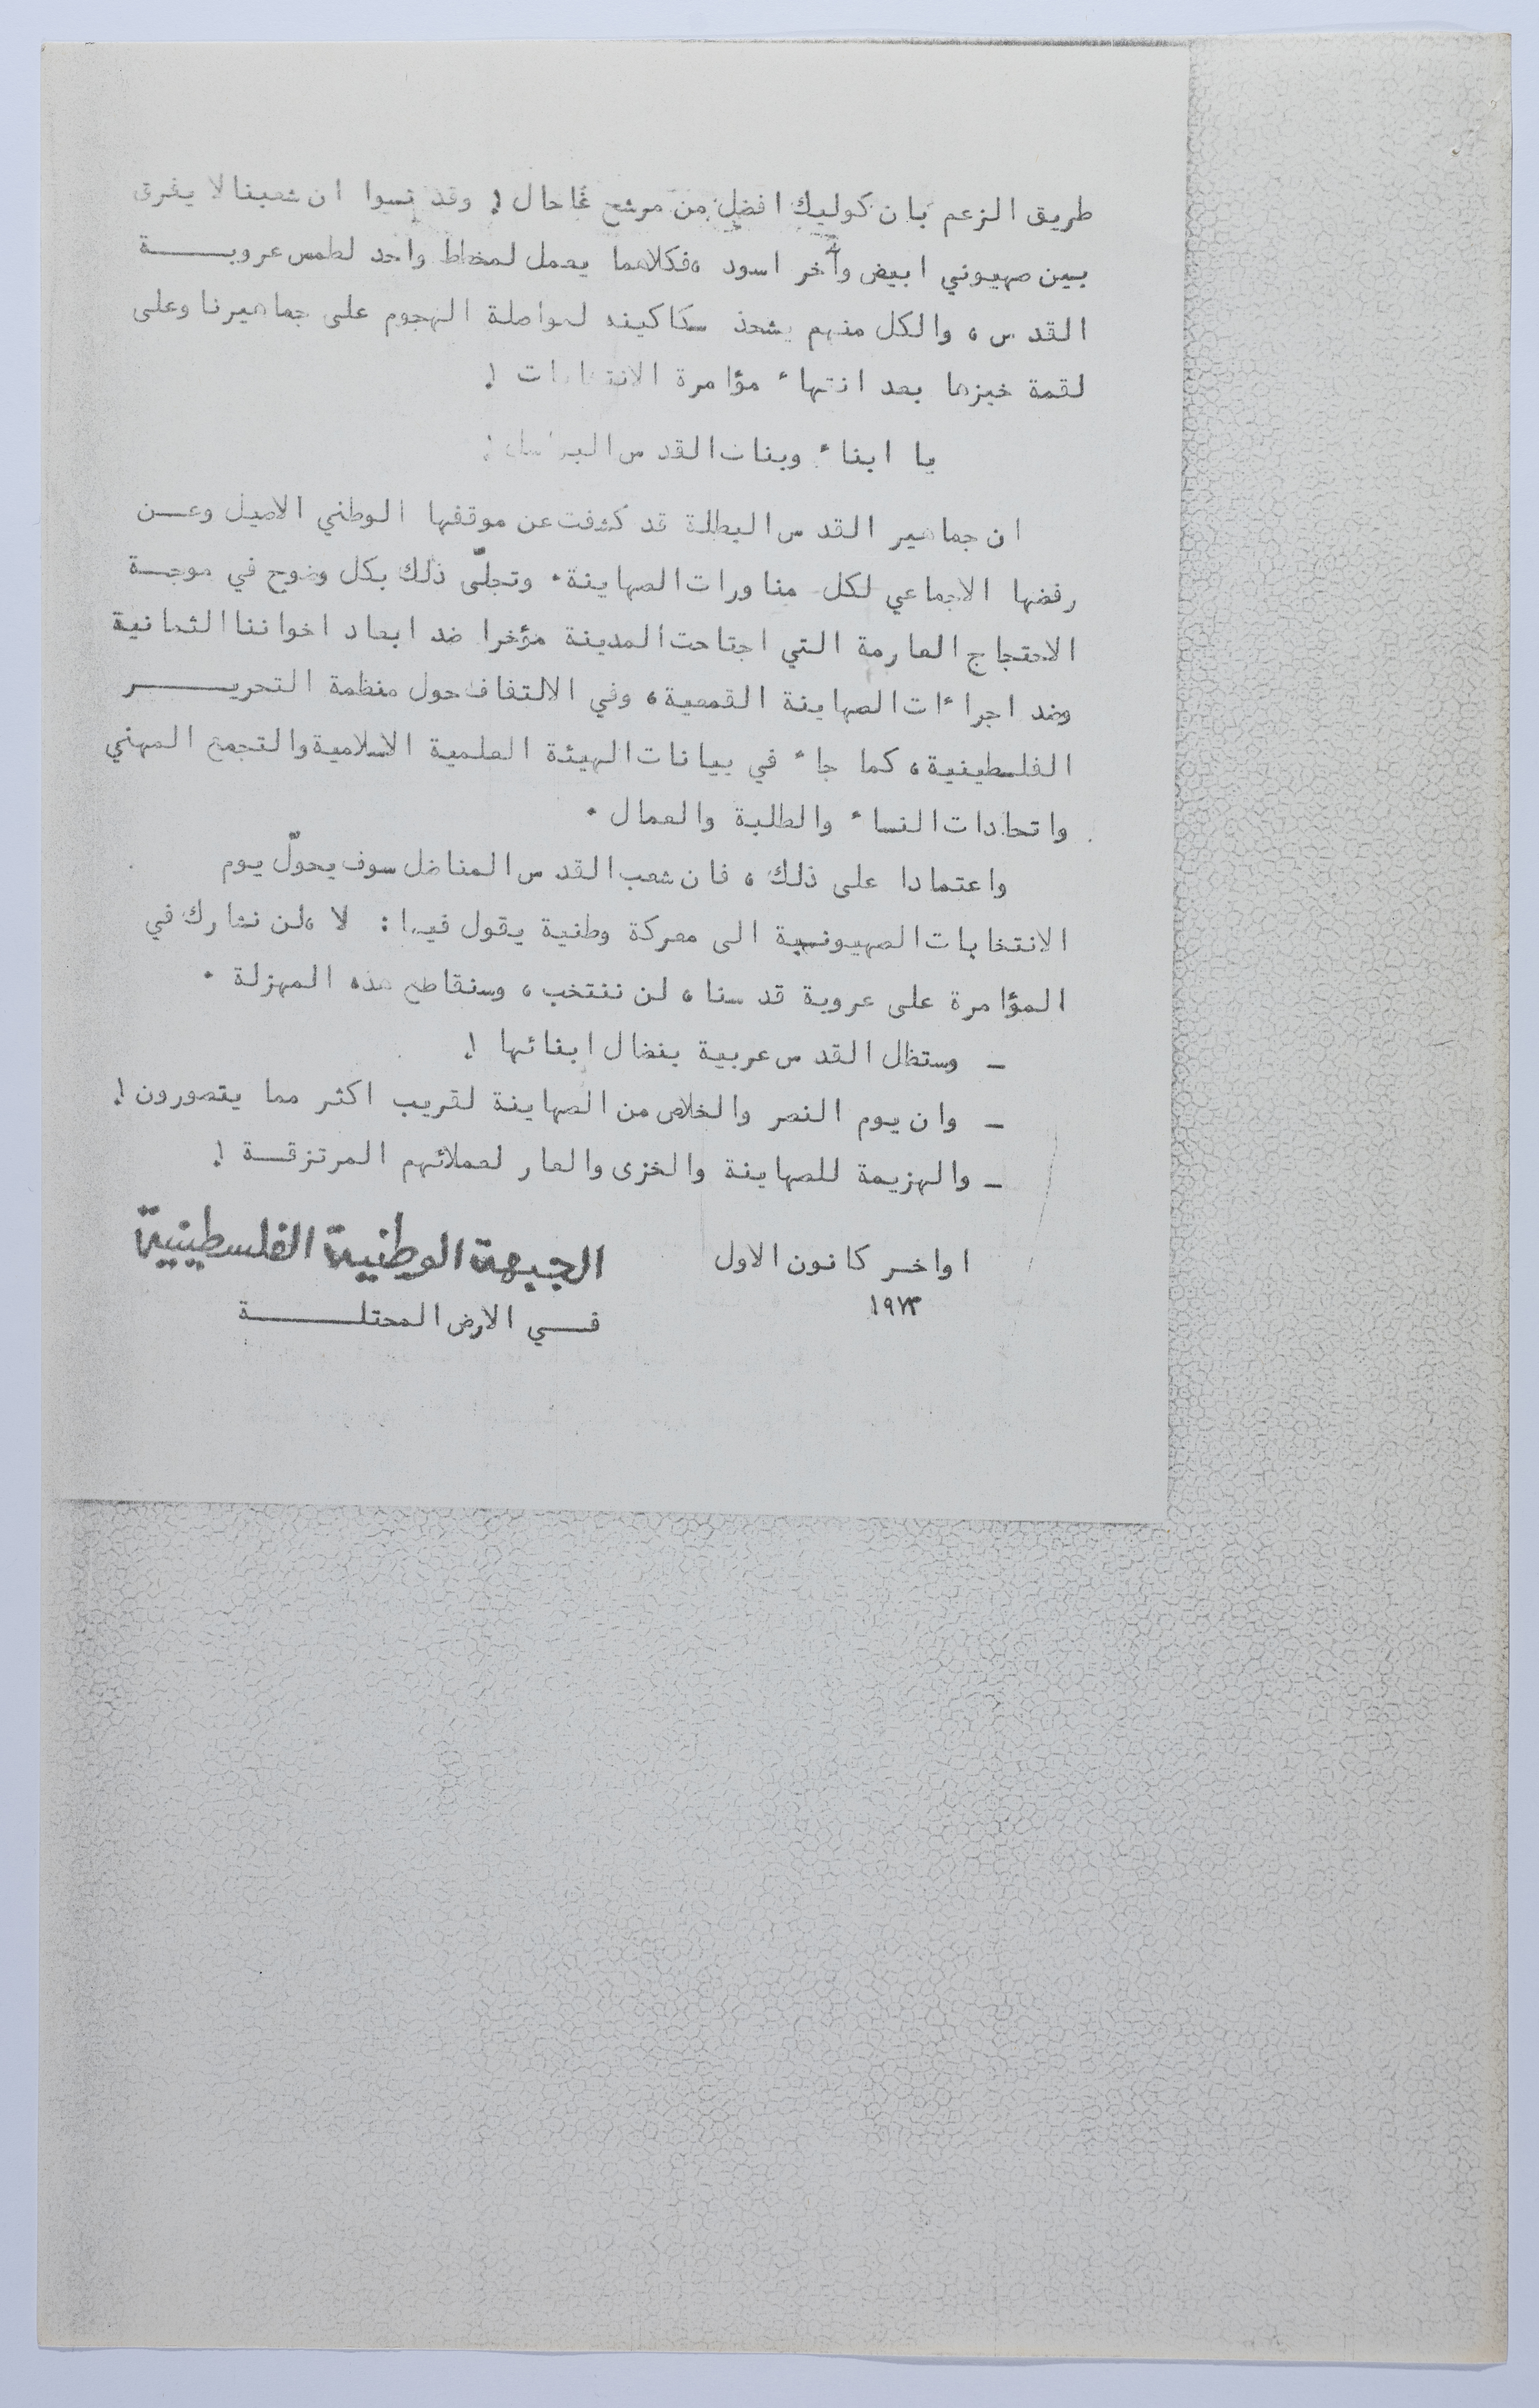 طريق الزعم بان كوليك افضل من مرشح غاحال ! وقد نسوا ان شعبنا لا يفرق
بين صهيوني ابيض وآخر اسود ، فكلاهما يعمل لمخطط واحد لطمس عروبــــــة
القدس ، والكل منهم يشحذ سكاكينه لمواصلة الهجوم على جماهيرنا وعلى
لقمة خبزها بعد انتهاء مؤامرة الانتخابات !
يا ابناء وبنات القدس !
ان جماهير القدس البطلة قد كشفت عن موقفها الوطني الاصيل وعــن
رفضها الاجماعي لكل مناورات الصهاينة . وتجلّى ذلك بكل وضوح في موجــة
الاحتجاج العارمة التي اجتاحت المدينة مؤخرا ضد ابعاد اخواننا الثمانية
وضد اجراءات الصهاينة القمعية ، وفي الالتفاف حول منظمة التحريـــــــر
الفلسطينية ، كما جاء في بيانات الهيئة العلمية الاسلامية والتجمع المهني
واتحادات النساء والطلبة والعمال .
واعتمادا على ذلك ، فان شعب القدس المناضل سوف يحوّل يوم
الانتخابات الصهيونية الى معركة وطنية يقول فيها : لا ، لن نشارك في
المؤامرة على عروبة قدسنا ، لن ننتخب ، وسنقاطع هذه المهزلة .
ــ وستظل القدس عربية بنضال ابنائها !
ــ وان يوم النصر والخلاص من الصهاينة لقريب اكثر مما يتصورون !
ــ والهزيمة للصهاينة والخزى والعار لعملائهم المرتزقــة !
اواخر كانون الاول
١٩٧٣
الجبهة الوطنية الفلسطينية
فــي الارض المحتلـــــــة